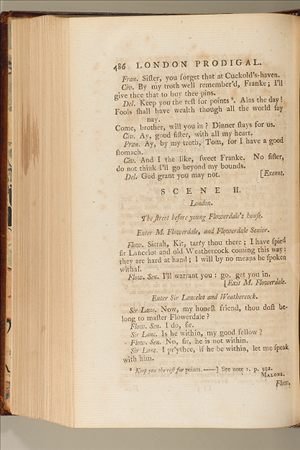 486 LONDON PRODIGAL.
Fran. Sister, you forget that at Cuckold's-haven.
Civ. By my troth well remember'd, Franke; I'll
give thee that to buy thee pins.
Del. Keep you the rest for points *. Alas the day!
Fools shall have wealth though all the world say
nay.
Come, brother, will you in? Dinner stays for us.
Civ. Ay, good sister, with all my heart.
Fran. Ay, by my troth, Tom, for I have a good
stomach.
Civ. And I the like, sweet Franke. No sister,
do not think I'll go beyond my bounds.
Del. God grant you may not. [Exeunt.
SCENE II.
London.
The street before young Flowerdale's house.
Enter M. Flowerdale, and Flowerdale Senior.
Flow. Sirrah, Kit, tarry thou there; I have spied
sir Lancelot and old Weathercock coming this way:
they are hard at hand; I will by no means be spoken
withal.
Flow. Sen. I'll warrant you: go, get you in.
[Exit M. Flowerdale.
Enter Sir Lancelot and Weathercock.
Sir Lanc. Now, my honest friend, thou dost be-
long to master Flowerdale?
Flow. Sen. I do, sir.
Sir Lanc. Is he within, my good fellow?
Flow. Sen. No, sir, he is not within.
Sir Lanc. I pr'ythee, if he be within, let me speak
with him.
* Keep you the rest for points.——] See note 1. p. 
MALONE.
Flow.